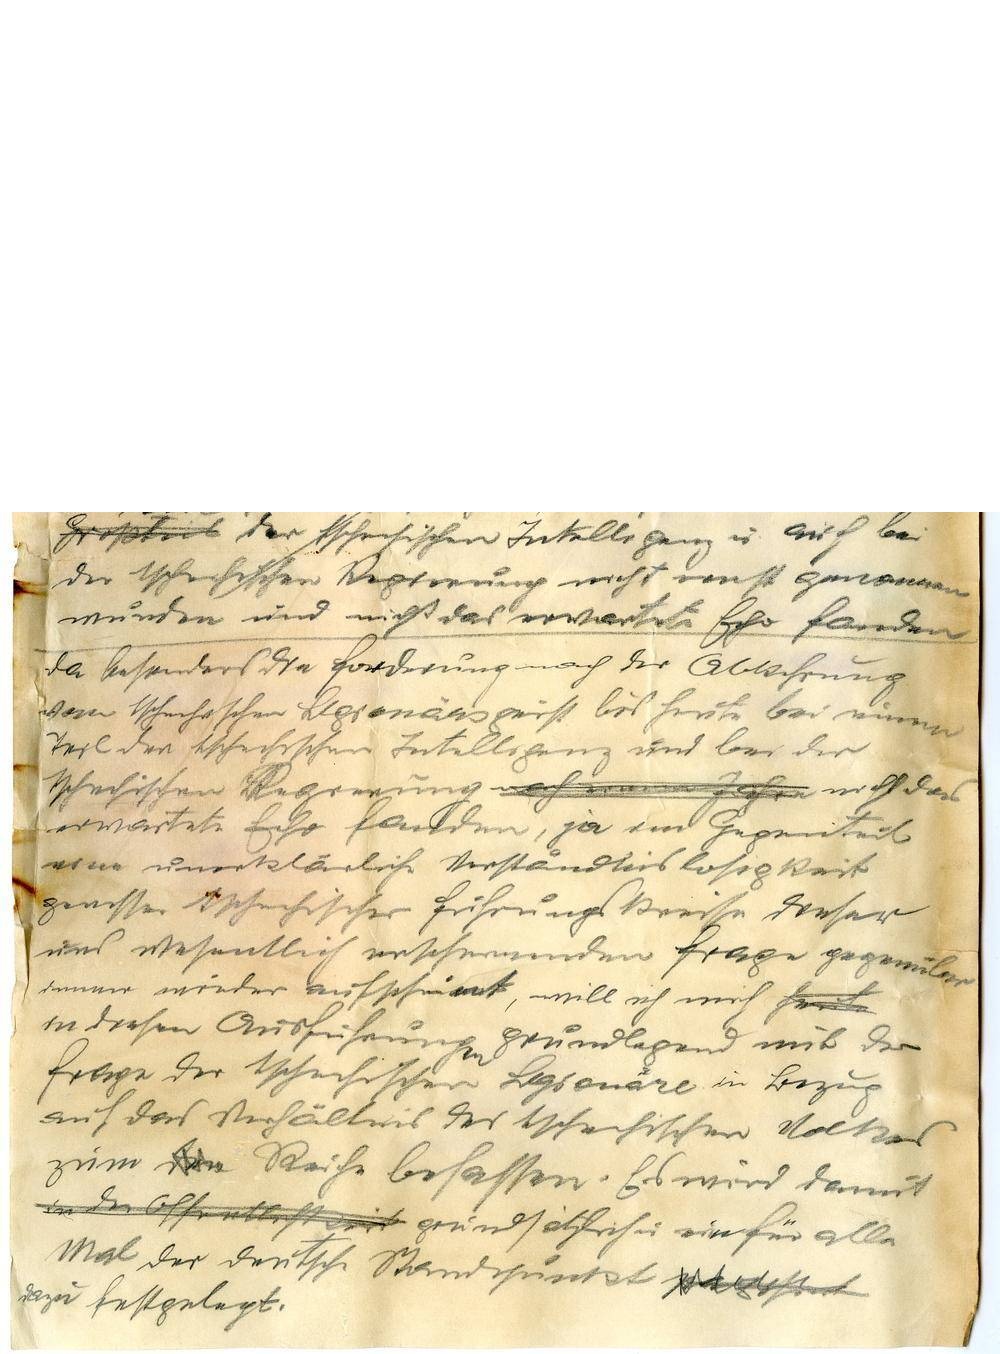 Großteil der tschechischen Intelligenz u. auch bei
der tschechischen Regierung nicht ernst genommen
wurden und nicht das erwartete Echo fanden
da besonders die Forderung nach der Abkehrung
vom tschechischen Legionärsgeist bis heute bei einem
Teil der tschechischen Intelligenz und bei der
tschechischen Regierung nach einem Jahre nicht das
erwartete Echo fanden, ja im Gegenteil
eine unerklärliche Verständnislosigkeit
gewisser tschechischer Führungskreise dieser
uns wesentlich erscheinenden Frage gegenüber
immer wieder aufscheint, will ich mich heute
in diesen Ausführungen grundlegend mit der
Frage der tschechischen Legionäre in Bezug
auf das Verhältnis des tschechischen Volkes
zum Reiche befassen. Es wird damit
in der Öffentlichkeit grundsätzlich u. ein für alle
Mal der deutsche Standpunkt
dazu festgelegt.